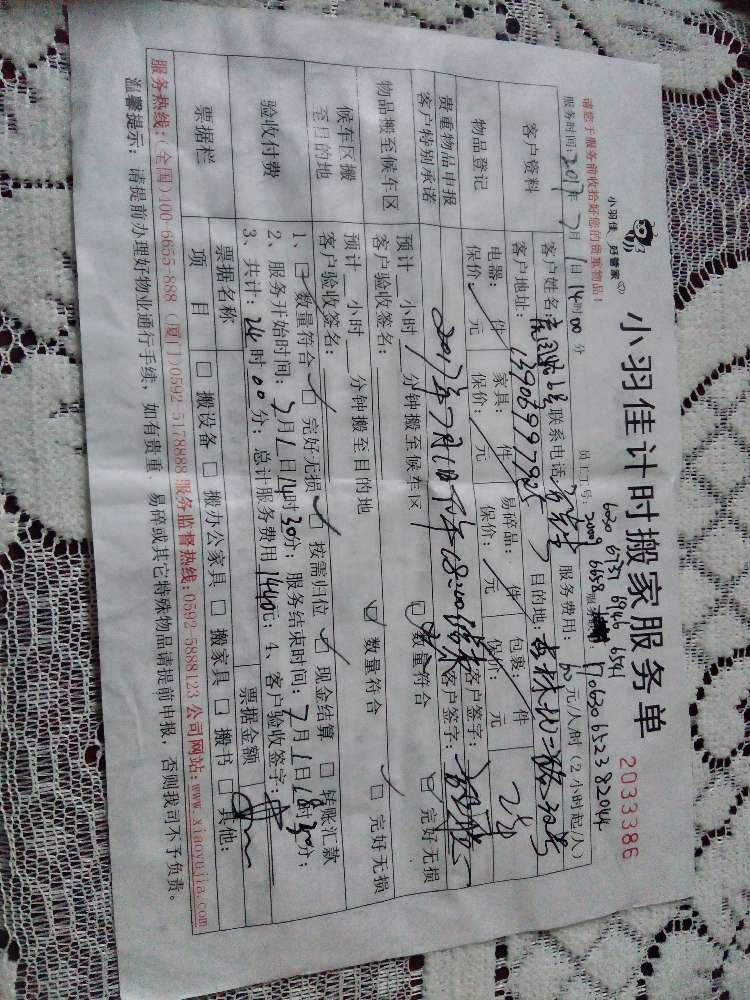 小羽佳 好管家
小羽佳计时搬家服务单
2033386
请您于服务前收拾好您的贵重物品!
员工工号: 6030 6731 6946 6541
2009 6658
服务时间: 2017年7月1日14时00分
170630652382044
服务费用: 60元/人/时(2小时起/人)
客户资料
客户姓名:
联系电话
13906997925
客户地址:
目的地:
物品登记
电器: 件 家具: 件 易碎品: 件 包裹: 件
保价: 元 保价: 元 保价: 元 保价: 元
贵重物品申报
客户签字:
客户特别承诺
2017年7月1日下午18:00结束
客户签字:
物品搬至候车区
预计 小时 分钟搬至候车区 数量符合 完好无损
客户验收签名:
候车区搬至目的地
预计 小时 分钟搬至目的地 数量符合 完好无损
客户验收签名:
验收付费
1、□ 数量符合 □ 完好无损 □ 按需归位 □ 现金结算 □ 转账汇款
2、服务开始时间: 7月1日14时30分; 服务结束时间: 7月1日18时30分;
3、共计: 24时00分; 总计服务费用1440元; 4、客户验收签字:
票据栏
票据名称
票据金额
项目
□ 搬设备 □ 搬办公家具 □ 搬家具 □ 搬书 □ 其他:
服务热线:(全国)400-6655-888 (厦门)0592-5178888 服务监督热线:0592-5888123 公司网站:www.xiaoyujia.com
温馨提示: 请提前办理好物业通行手续, 如有贵重、易碎或其它特殊物品请提前申报, 否则我司不予负责。